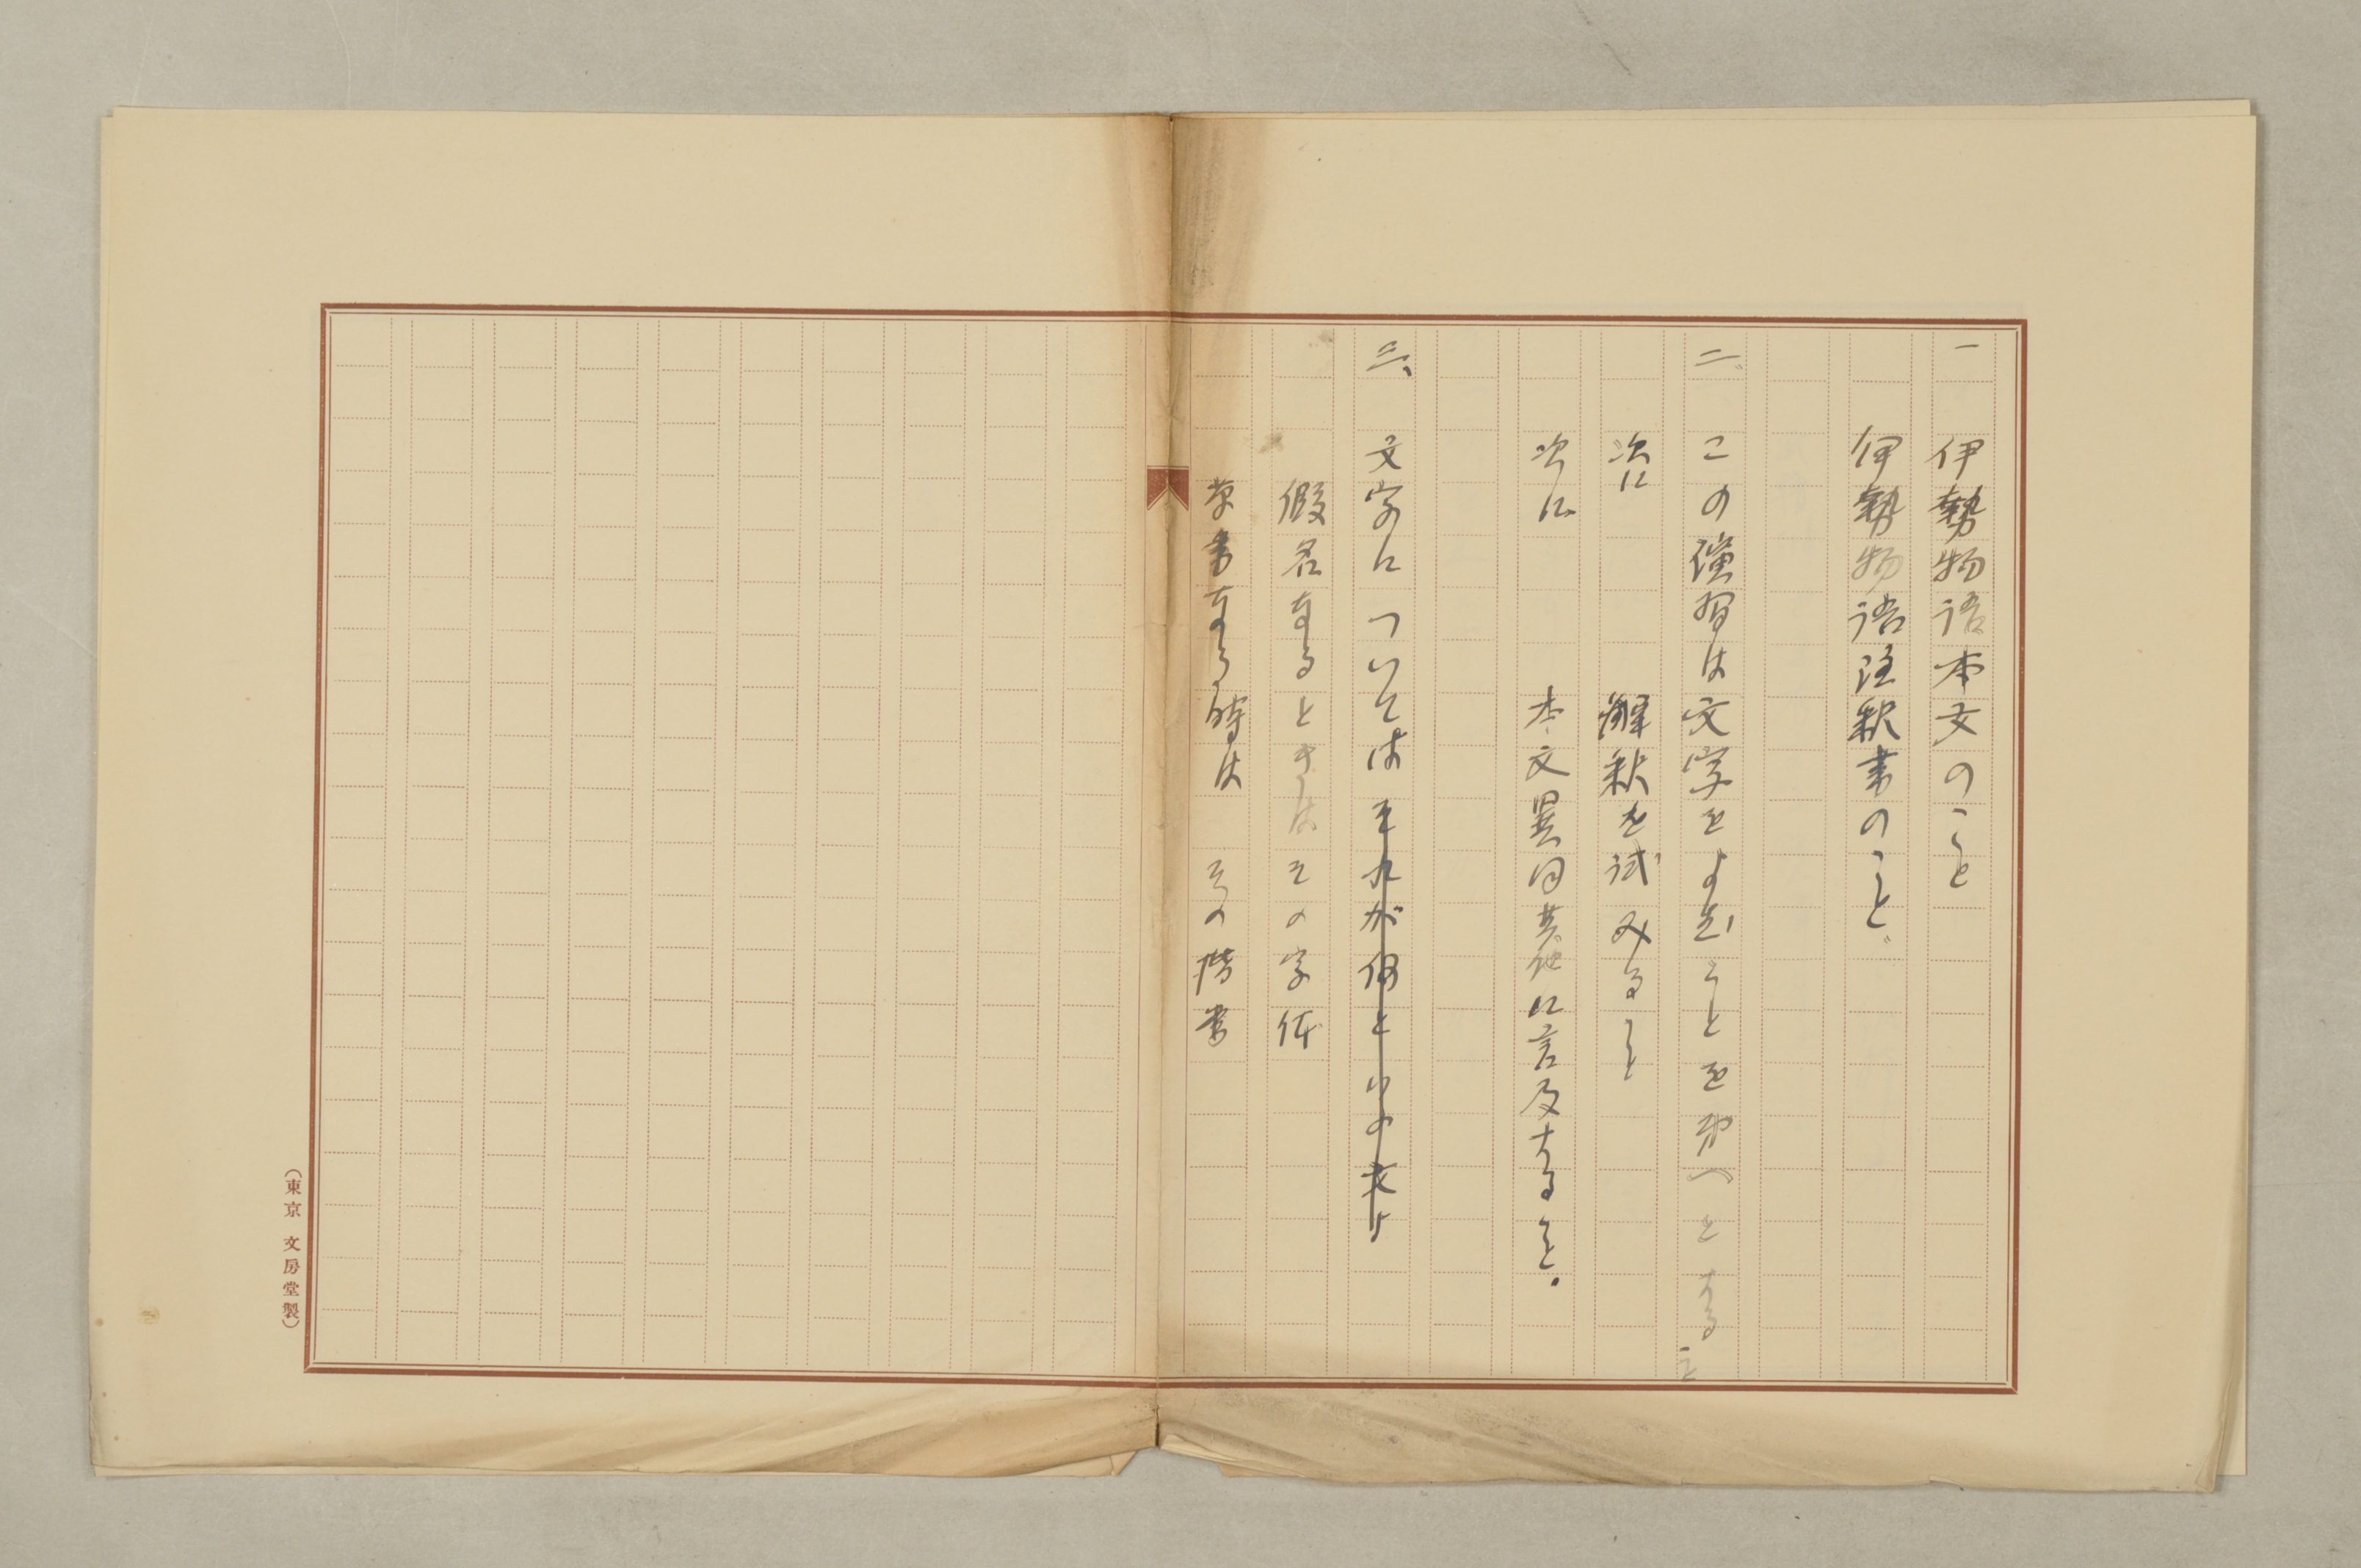 一 伊勢物語本文のこと
伊勢物語注釈書のこと
二、この演習は文字をよむことを第一とすること
次に 解釈を試みること
次に 本文異同其他に言及すること。
三、文字については それが何といふ
假名なるときは その字体
草書なる時は その楷書
(東京 文房堂製)